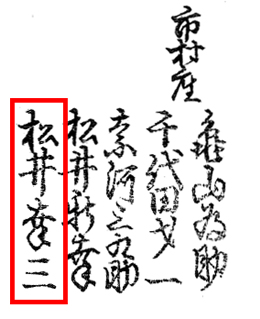 市村座
亀山為助
千代田才一
奈河三九助
松井新幸
松井幸三